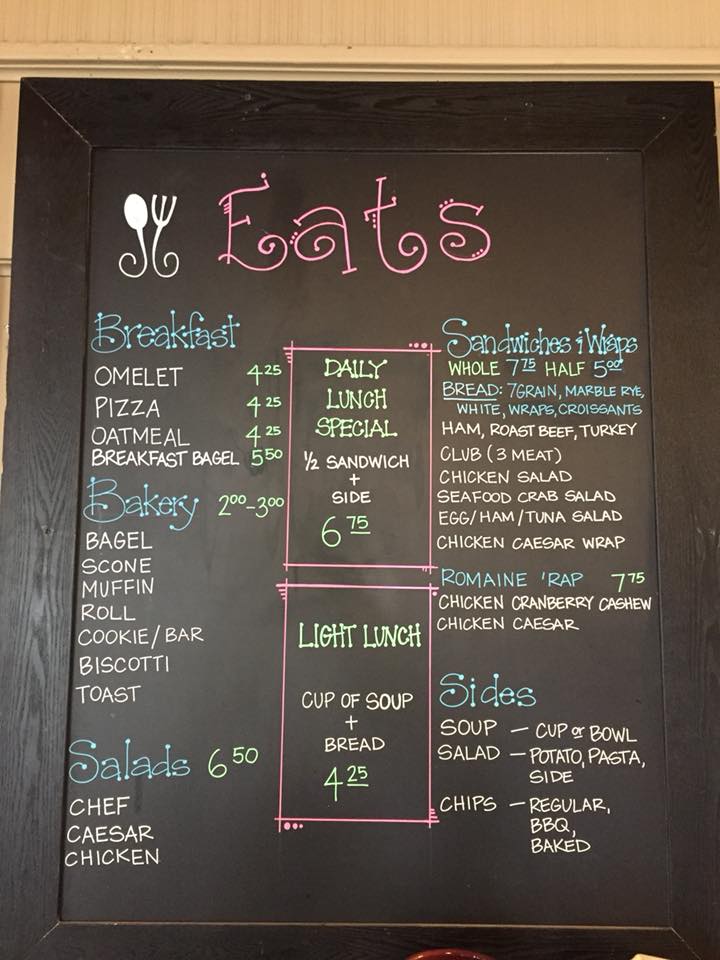 Eats
Breakfast
OMELET 4.25
PIZZA 4.25
OATMEAL 4.25
BREAKFAST BAGEL 5.50
Bakery 2.00-3.00
BAGEL
SCONE
MUFFIN
ROLL
COOKIE/BAR
BISCOTTI
TOAST
Salads 6.50
CHEF
CAESAR
CHICKEN
DAILY
LUNCH
SPECIAL
1/2 SANDWICH
+
SIDE
6.75
LIGHT LUNCH
CUP OF SOUP
+
BREAD
4.25
Sandwiches & Wraps
WHOLE 7.75 HALF 5.00
BREAD: 7GRAIN, MARBLE RYE,
WHITE, WRAPS, CROISSANTS
HAM, ROAST BEEF, TURKEY
CLUB (3 MEAT)
CHICKEN SALAD
SEAFOOD CRAB SALAD
EGG/HAM/TUNA SALAD
CHICKEN CAESAR WRAP
ROMAINE 'RAP 7.75
CHICKEN CRANBERRY CASHEW
CHICKEN CAESAR
Sides
SOUP — CUP or BOWL
SALAD — POTATO, PASTA,
SIDE
CHIPS — REGULAR,
BBQ,
BAKED